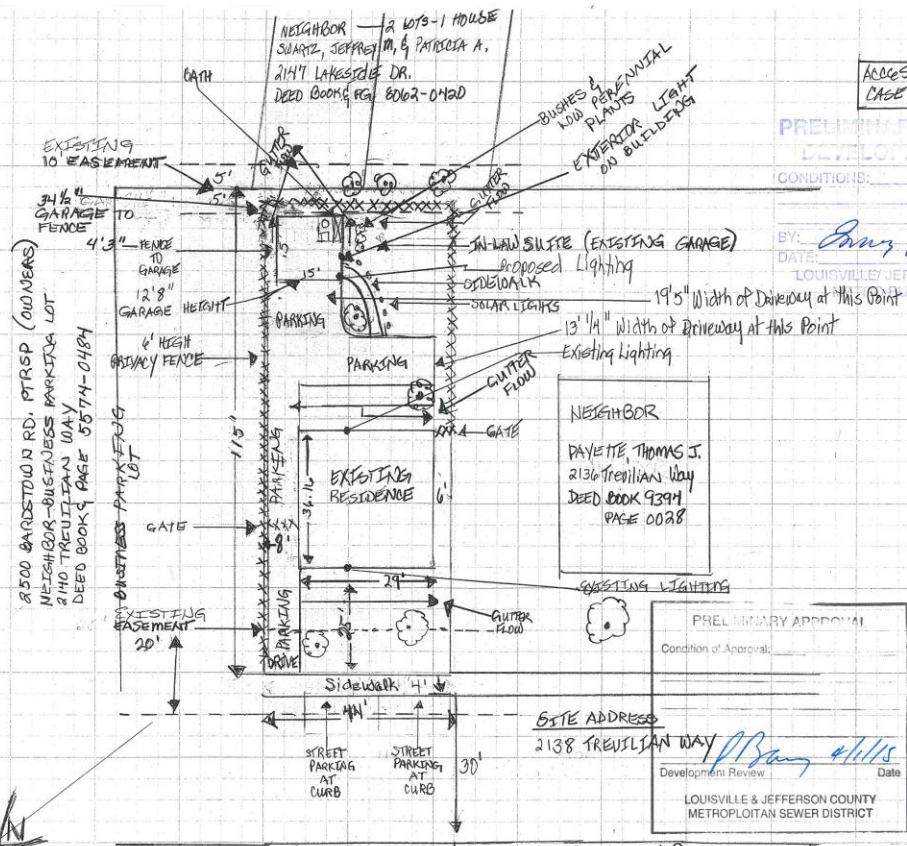 NEIGHBOR — 2 LOTS-1 HOUSE
SWARTZ, JEFFREY M, & PATRICIA A.
2147 LAKESIDE DR.
DEED BOOK & PG 8062-0420
BATH
BUSHES &
LOW PERENNIAL
PLANTS
EXTERIOR LIGHT
ON BUILDING
CASE
PRELIMINAR
DEVELOP
CONDITIONS:
BY:
DATE:
LOUISVILLE/JEF
EXISTING
10' EASEMENT
5'
5'
GUTTER
FLOW
GUTTER
FLOW
34 1/2"
GARAGE TO
FENCE
4'3" — FENCE
TO
GARAGE
12'8"
GARAGE HEIGHT
15'
15'
IN-LAW SUITE (EXISTING GARAGE)
Proposed Lighting
SIDEWALK
SOLAR LIGHTS
19'5" Width of Driveway at this Point
13' 1/4" Width of Driveway at this Point
Existing Lighting
PARKING
6' HIGH
PRIVACY FENCE
PARKING
GUTTER
FLOW
GATE
2500 BARDSTOWN RD. PTRSP (OWNERS)
NEIGHBOR-BUSINESS PARKING LOT
2140 TREVILIAN WAY
DEED BOOK & PAGE 5574-0484
BUSINESS PARKING
LOT
115"
PARKING
EXISTING
RESIDENCE
6'
NEIGHBOR
PAYETTE, THOMAS J.
2136 Trevilian Way
DEED BOOK 9394
PAGE 0028
GATE
8'
29'
EXISTING LIGHTING
EXISTING
EASEMENT
20'
PARKING
DRIVE
GUTTER
FLOW
Sidewalk 4'
44'
STREET
PARKING
AT
CURB
STREET
PARKING
AT
CURB
30'
SITE ADDRESS
2138 TREVILIAN WAY
N
PRELIMINARY APPROVAL
Condition of Approval:
4/1/15
Development Review
Date
LOUISVILLE & JEFFERSON COUNTY
METROPLOITAN SEWER DISTRICT